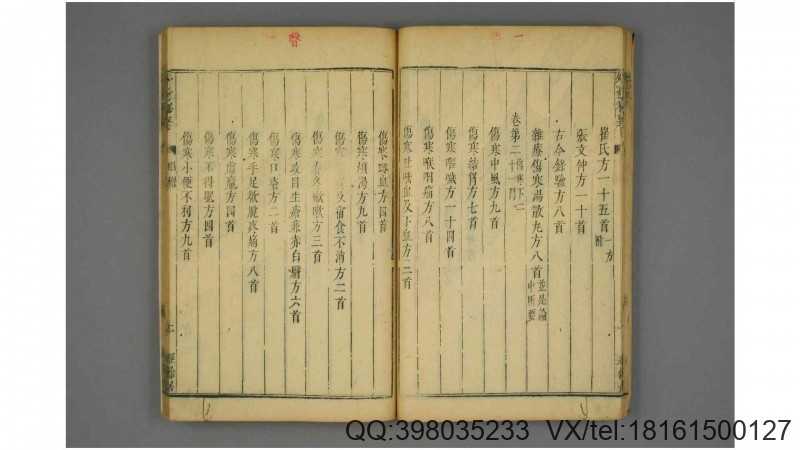 崔氏方一十五首一方附
張文仲方一十首
古今錄驗方八首
雜療傷寒湯散丸方八首並是論中所要
卷第二傷寒下二十二門
傷寒中風方九首
傷寒結胸方七首
傷寒嘔噦方一十四首
傷寒喉咽痛方八首
傷寒吐唾血及下血方三首
傷寒衄血方四首
傷寒煩渴方九首
傷寒 食不消方二首
傷寒 欬嗽方三首
傷寒攻目生瘡兼赤白翳方六首
傷寒口瘡方二首
傷寒手足欲脫疼痛方八首
傷寒 方四首
傷寒不得眠方四首
傷寒小便不利方九首
目錄
二
QQ:398035233 VX/tel:18161500127